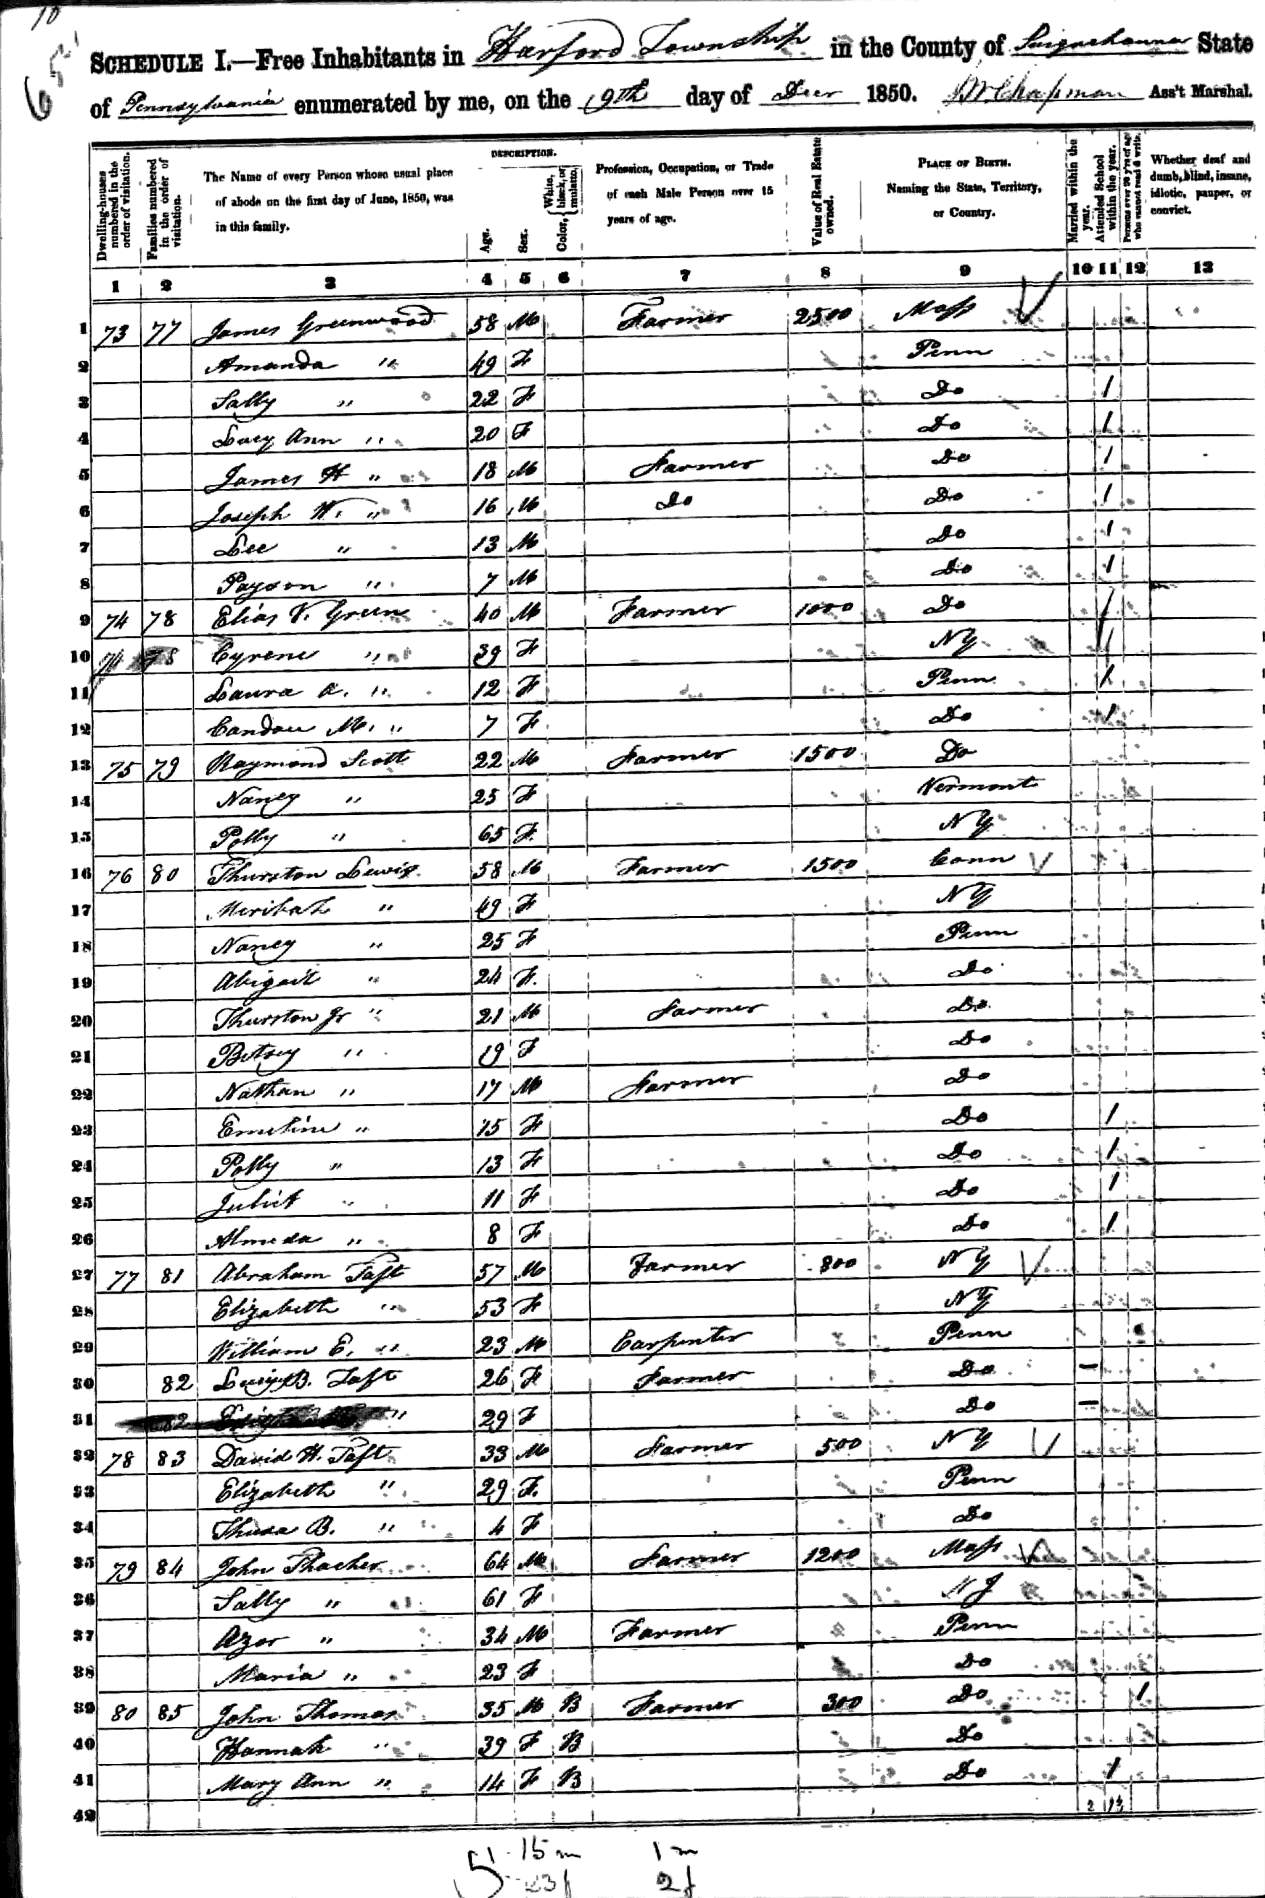 10
65
SCHEDULE I.—Free Inhabitants in Harford Township in the County of Susquehanna State
of Pennsylvania enumerated by me, on the 19th day of Decr 1850. Chapman Ass't Marshal.
Dwelling-houses numbered in the order of visitation.
Families numbered in the order of visitation.
The Name of every Person whose usual place of abode on the first day of June, 1850, was in this family.
DESCRIPTION.
Age.
Sex.
Color, { White, black, or mulatto.
Profession, Occupation, or Trade of each Male Person over 15 years of age.
Value of Real Estate owned.
PLACE OF BIRTH. Naming the State, Territory, or Country.
Married within the year.
Attended School within the year.
Persons over 20 y'rs of age who cannot read & write.
Whether deaf and dumb, blind, insane, idiotic, pauper, or convict.
1 2 3 4 5 6 7 8 9 10 11 12 13
1 73 77 James Greenwood 58 M Farmer 2500 Mass
2 Amanda " 49 F Penn
3 Sally " 22 F Do 1
4 Lucy Ann " 20 F Do 1
5 James H " 18 M Farmer Do 1
6 Joseph W. " 16 M Do Do 1
7 Lee " 13 M Do 1
8 Payson " 7 M Do 1
9 74 78 Elias V. Green 40 M Farmer 1000 Do
10 74 78 Cyrene " 39 F NY
11 Laura A. " 12 F Penn 1
12 Candace M. " 7 F Do 1
13 75 79 Raymond Scott 22 M Farmer 1500 Do
14 Nancy " 25 F Vermont
15 Polly " 65 F. NY
16 76 80 Thurston Lewis 58 M Farmer 1500 Conn
17 Meribah " 49 F NY
18 Nancy " 25 F Penn
19 Abigail " 24 F. Do
20 Thurston Jr " 21 M Farmer Do
21 Betsey " 19 F Do
22 Nathan " 17 M Farmer Do
23 Emeline " 15 F Do 1
24 Polly " 13 F Do 1
25 Juliet " 11 F Do 1
26 Almeda " 8 F Do 1
27 77 81 Abraham Taft 57 M Farmer 800 NY
28 Elizabeth " 53 F NY
29 William E. " 23 M Carpenter Penn
30 82 B. Taft 26 F Farmer Do –
31 82 " 29 F Do –
32 78 83 David H. Taft 33 M Farmer 500 NY
33 Elizabeth " 29 F. Penn
34 B. " 4 F Do
35 79 84 John Thacher 64 M Farmer 1200 Mass
36 Sally " 61 F N J
37 Azor " 34 M Farmer Penn
38 Maria " 23 F Do
39 80 85 John Thomas 35 M B Farmer 300 Do 1
40 Hannah " 39 F B Do
41 Mary Ann " 14 F B Do 1
42 2
15 m 1 m
23 f 2 f